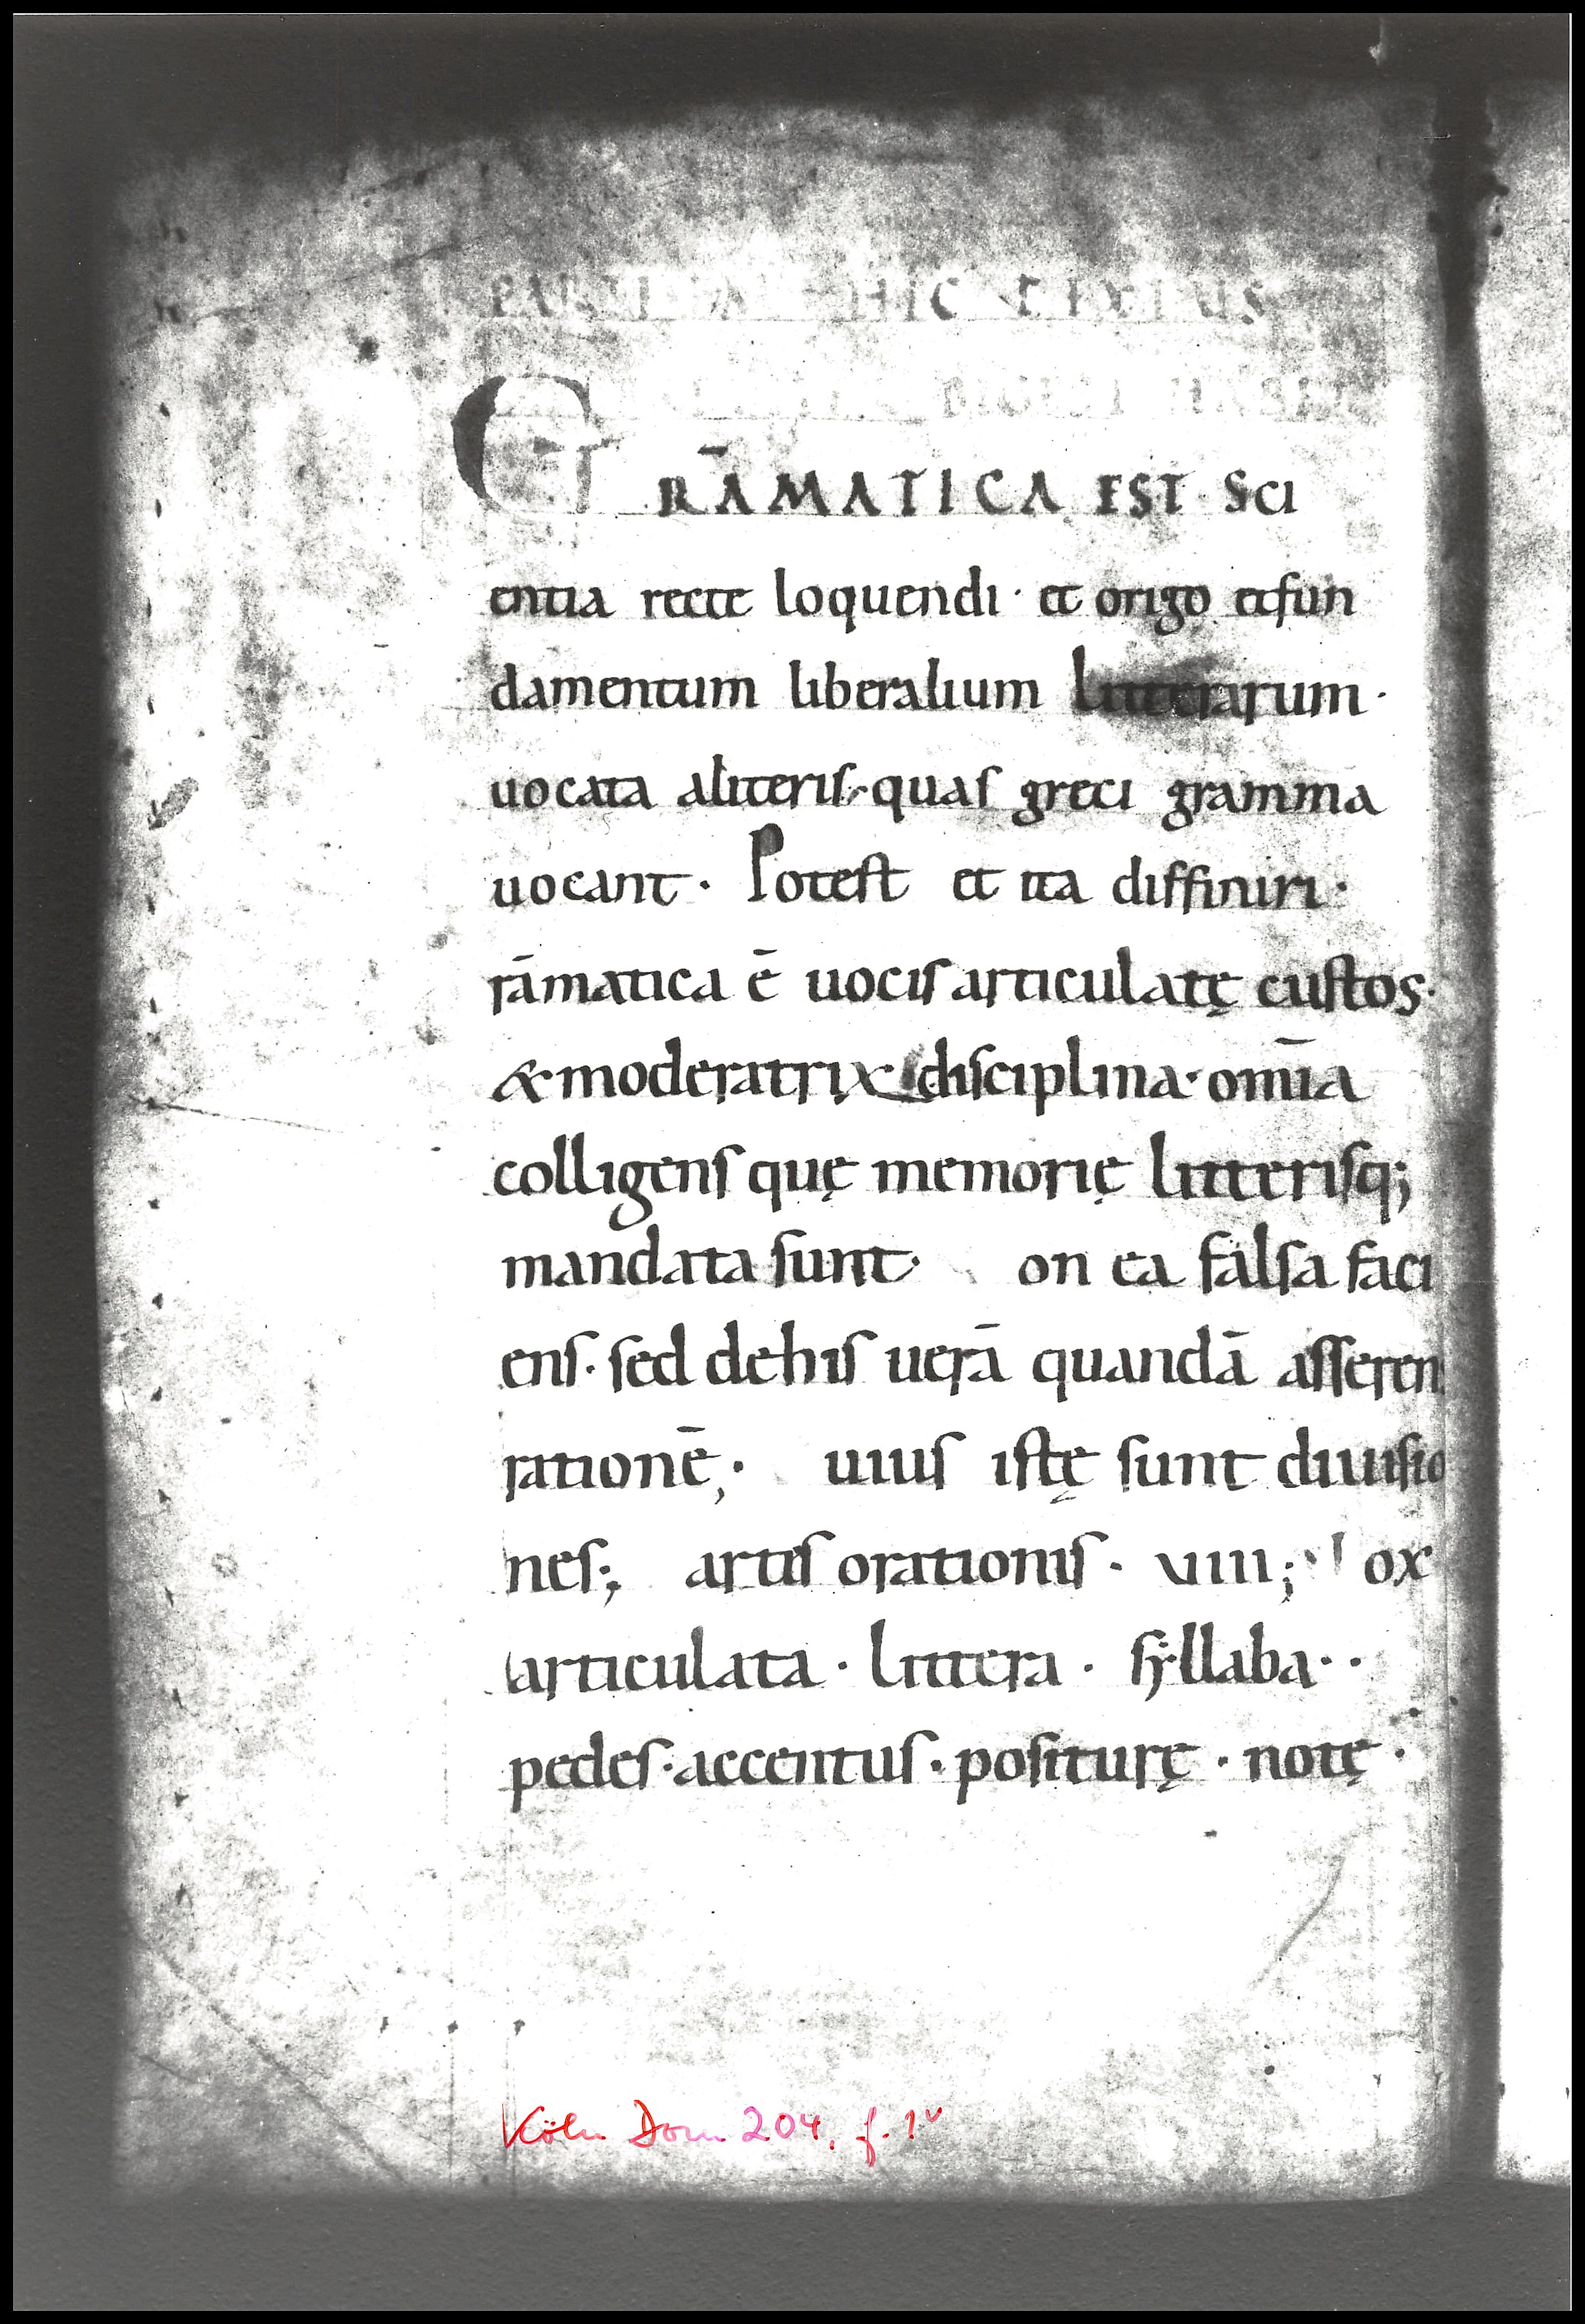 GRĀMATICA EST SCI
entia recte loquendi · et origo et fun
damentum liberalium litterarum ·
uocata a literis · quas greci gramma
uocant · Potest et ita diffiniri ·
rāmatica ē uocis articulatę custos ·
& moderatrix disciplina · om̄ia
colligens quę memorię litterisq;
mandata sunt · on ea falsa faci
ens · sed de his uerā quandā asseren
rationē; · uius istę sunt diuisio
nes; artis orationis · VIIII; ox
articulata · littera · syllaba · ·
pedes · accentus · positurę · notę ·
Köln Dom 204, f. 1v